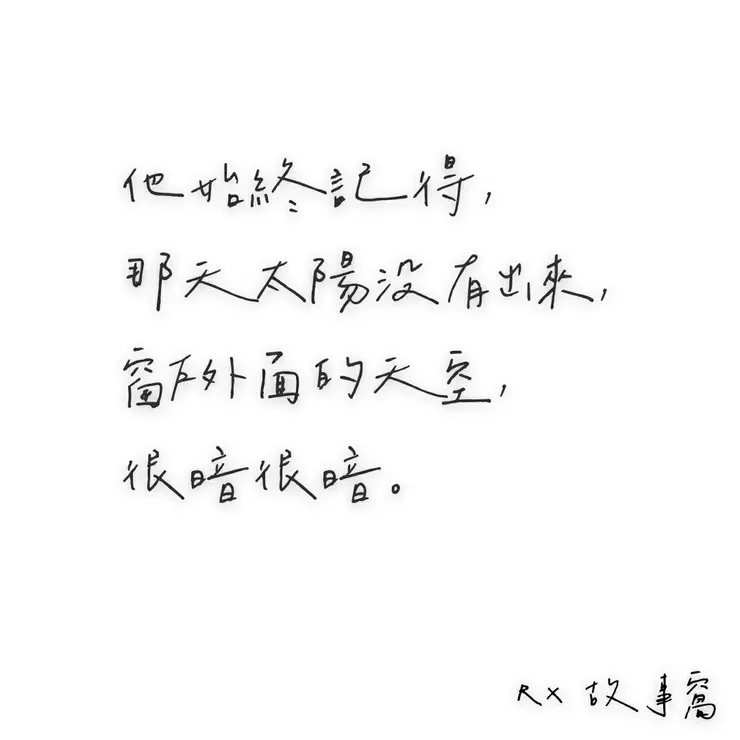 他始終記得，
那天太陽没有出來，
窗户外面的天空，
很暗很暗。
RX 故事窩